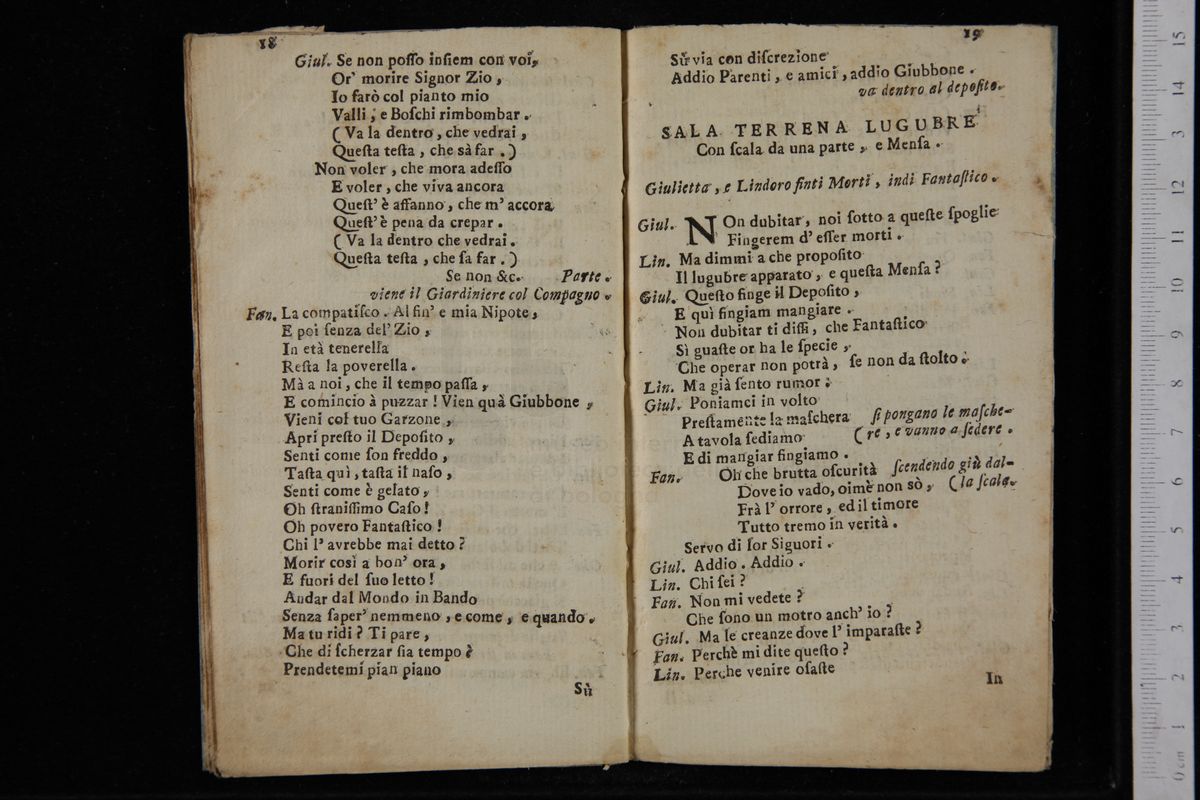 18
Giul. Se non poſſo inſiem con voi,
Or' morire Signor Zio,
Io farò col pianto mio
Valli, e Boſchi rimbombar.
(Va la dentro, che vedrai,
Queſta teſta, che sà far.)
Non voler, che mora adeſſo
E voler, che viva ancora
Queſt' è affanno, che m' accora
Queſt' è pena da crepar.
(Va la dentro che vedrai.
Queſta teſta, che fa far.)
Se non &c. Parte.
viene il Giardiniere col Compagno.
Fan. La compatiſco. Al fin' e mia Nipote,
E poi ſenza del' Zio,
In età tenerella
Reſta la poverella.
Mà a noi, che il tempo paſſa,
E comincio à puzzar! Vien quà Giubbone,
Vieni col tuo Garzone,
Apri preſto il Depoſito,
Senti come ſon freddo,
Taſta quì, taſta il naſo,
Senti come è gelato,
Oh ſtraniſſimo Caſo!
Oh povero Fantaſtico!
Chi l' avrebbe mai detto?
Morir così a bon' ora,
E fuori del ſuo letto!
Andar dal Mondo in Bando
Senza ſaper' nemmeno, e come, e quando.
Ma tu ridi? Ti pare,
Che di ſcherzar ſia tempo?
Prendetemi pian piano
Sù
19
Sù via con diſcrezione
Addio Parenti, e amici, addio Giubbone.
va dentro al depoſito.
SALA TERRENA LUGUBRE
Con ſcala da una parte, e Menſa.
Giulietta, e Lindoro finti Morti, indi Fantaſtico.
Giul. NOn dubitar, noi ſotto a queſte ſpoglie
Fingerem d' eſſer morti.
Lin. Ma dimmi a che propoſito
Il lugubre apparato, e queſta Menſa?
Giul. Queſto finge il Depoſito,
E quì fingiam mangiare.
Non dubitar ti diſſi, che Fantaſtico
Sì guaſte or ha le ſpecie,
Che operar non potrà, ſe non da ſtolto.
Lin. Ma già ſento rumor.
Giul. Poniamci in volto
Preſtamente la maſchera ſi pongano le maſche-
A tavola ſediamo (re, e vanno a ſedere.
E di mangiar fingiamo.
Fan. Oh che brutta oſcurità ſcendendo giù dal-
Dove io vado, oimè non sò, (la ſcala.
Frà l' orrore, ed il timore
Tutto tremo in verità.
Servo di ſor Siguori.
Giul. Addio. Addio.
Lin. Chi ſei?
Fan. Non mi vedete?
Che ſono un motro anch' io?
Giul. Ma le creanze dove l' imparaſte?
Fan. Perchè mi dite queſto?
Lin. Perche venire oſaſte
In
0 cm 1 2 3 4 5 6 7 8 9 10 11 12 13 14 15